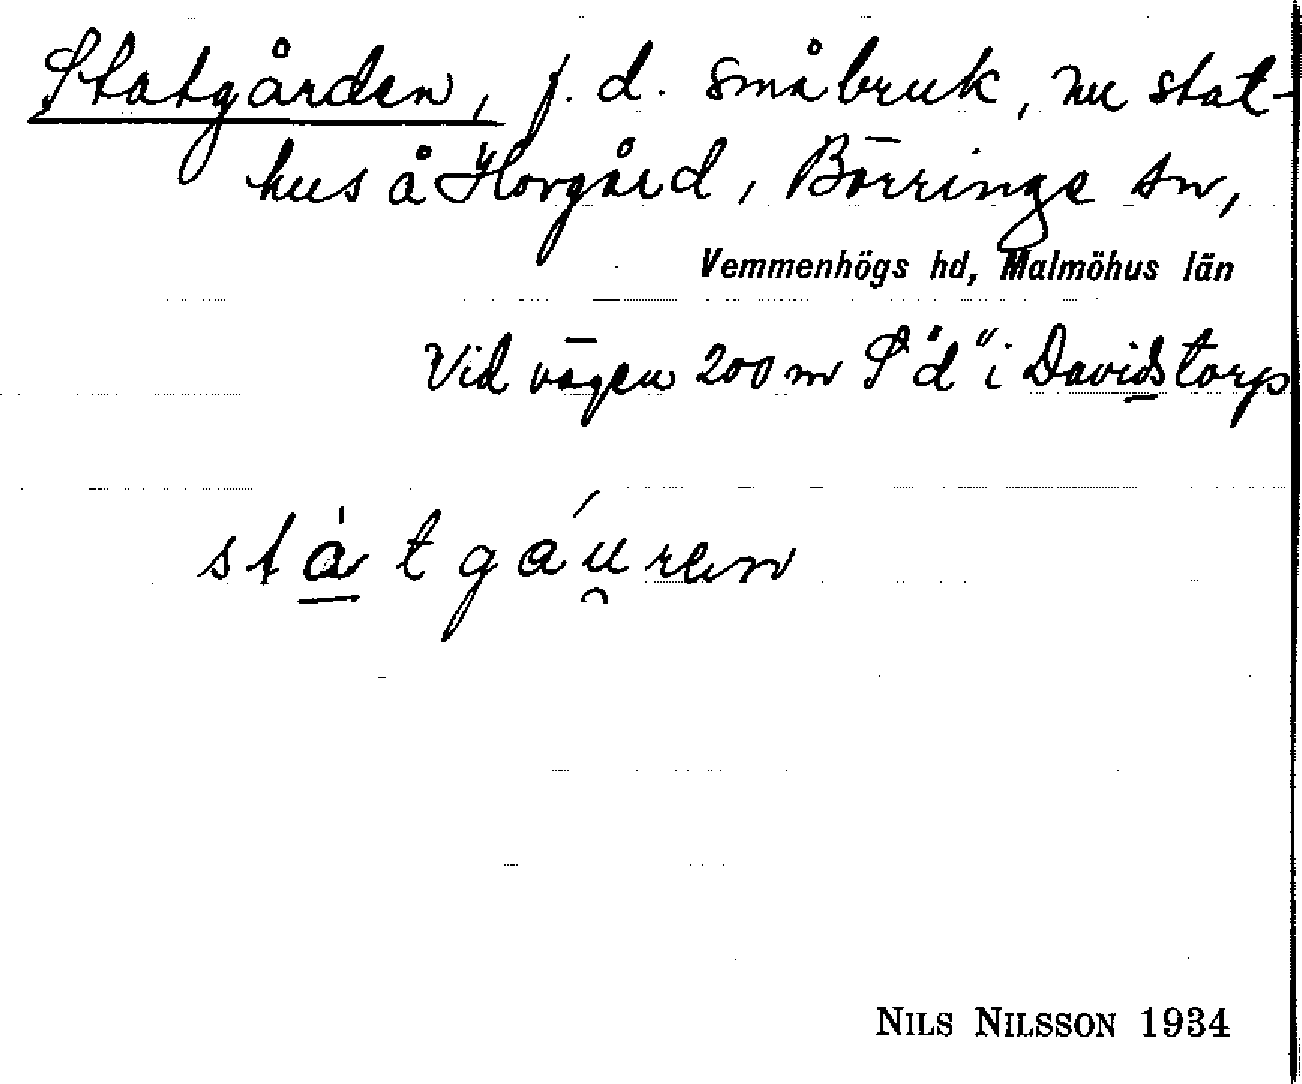 Statgården, f. d. småbruk, nu stat-
hus å Hovgård, Börringe sn,
Vemmenhögs hd, Malmöhus län
Vid vägen 200 m S "d" i Davidstorp
stàtgáu̯ren
NILS NILSSON 1934